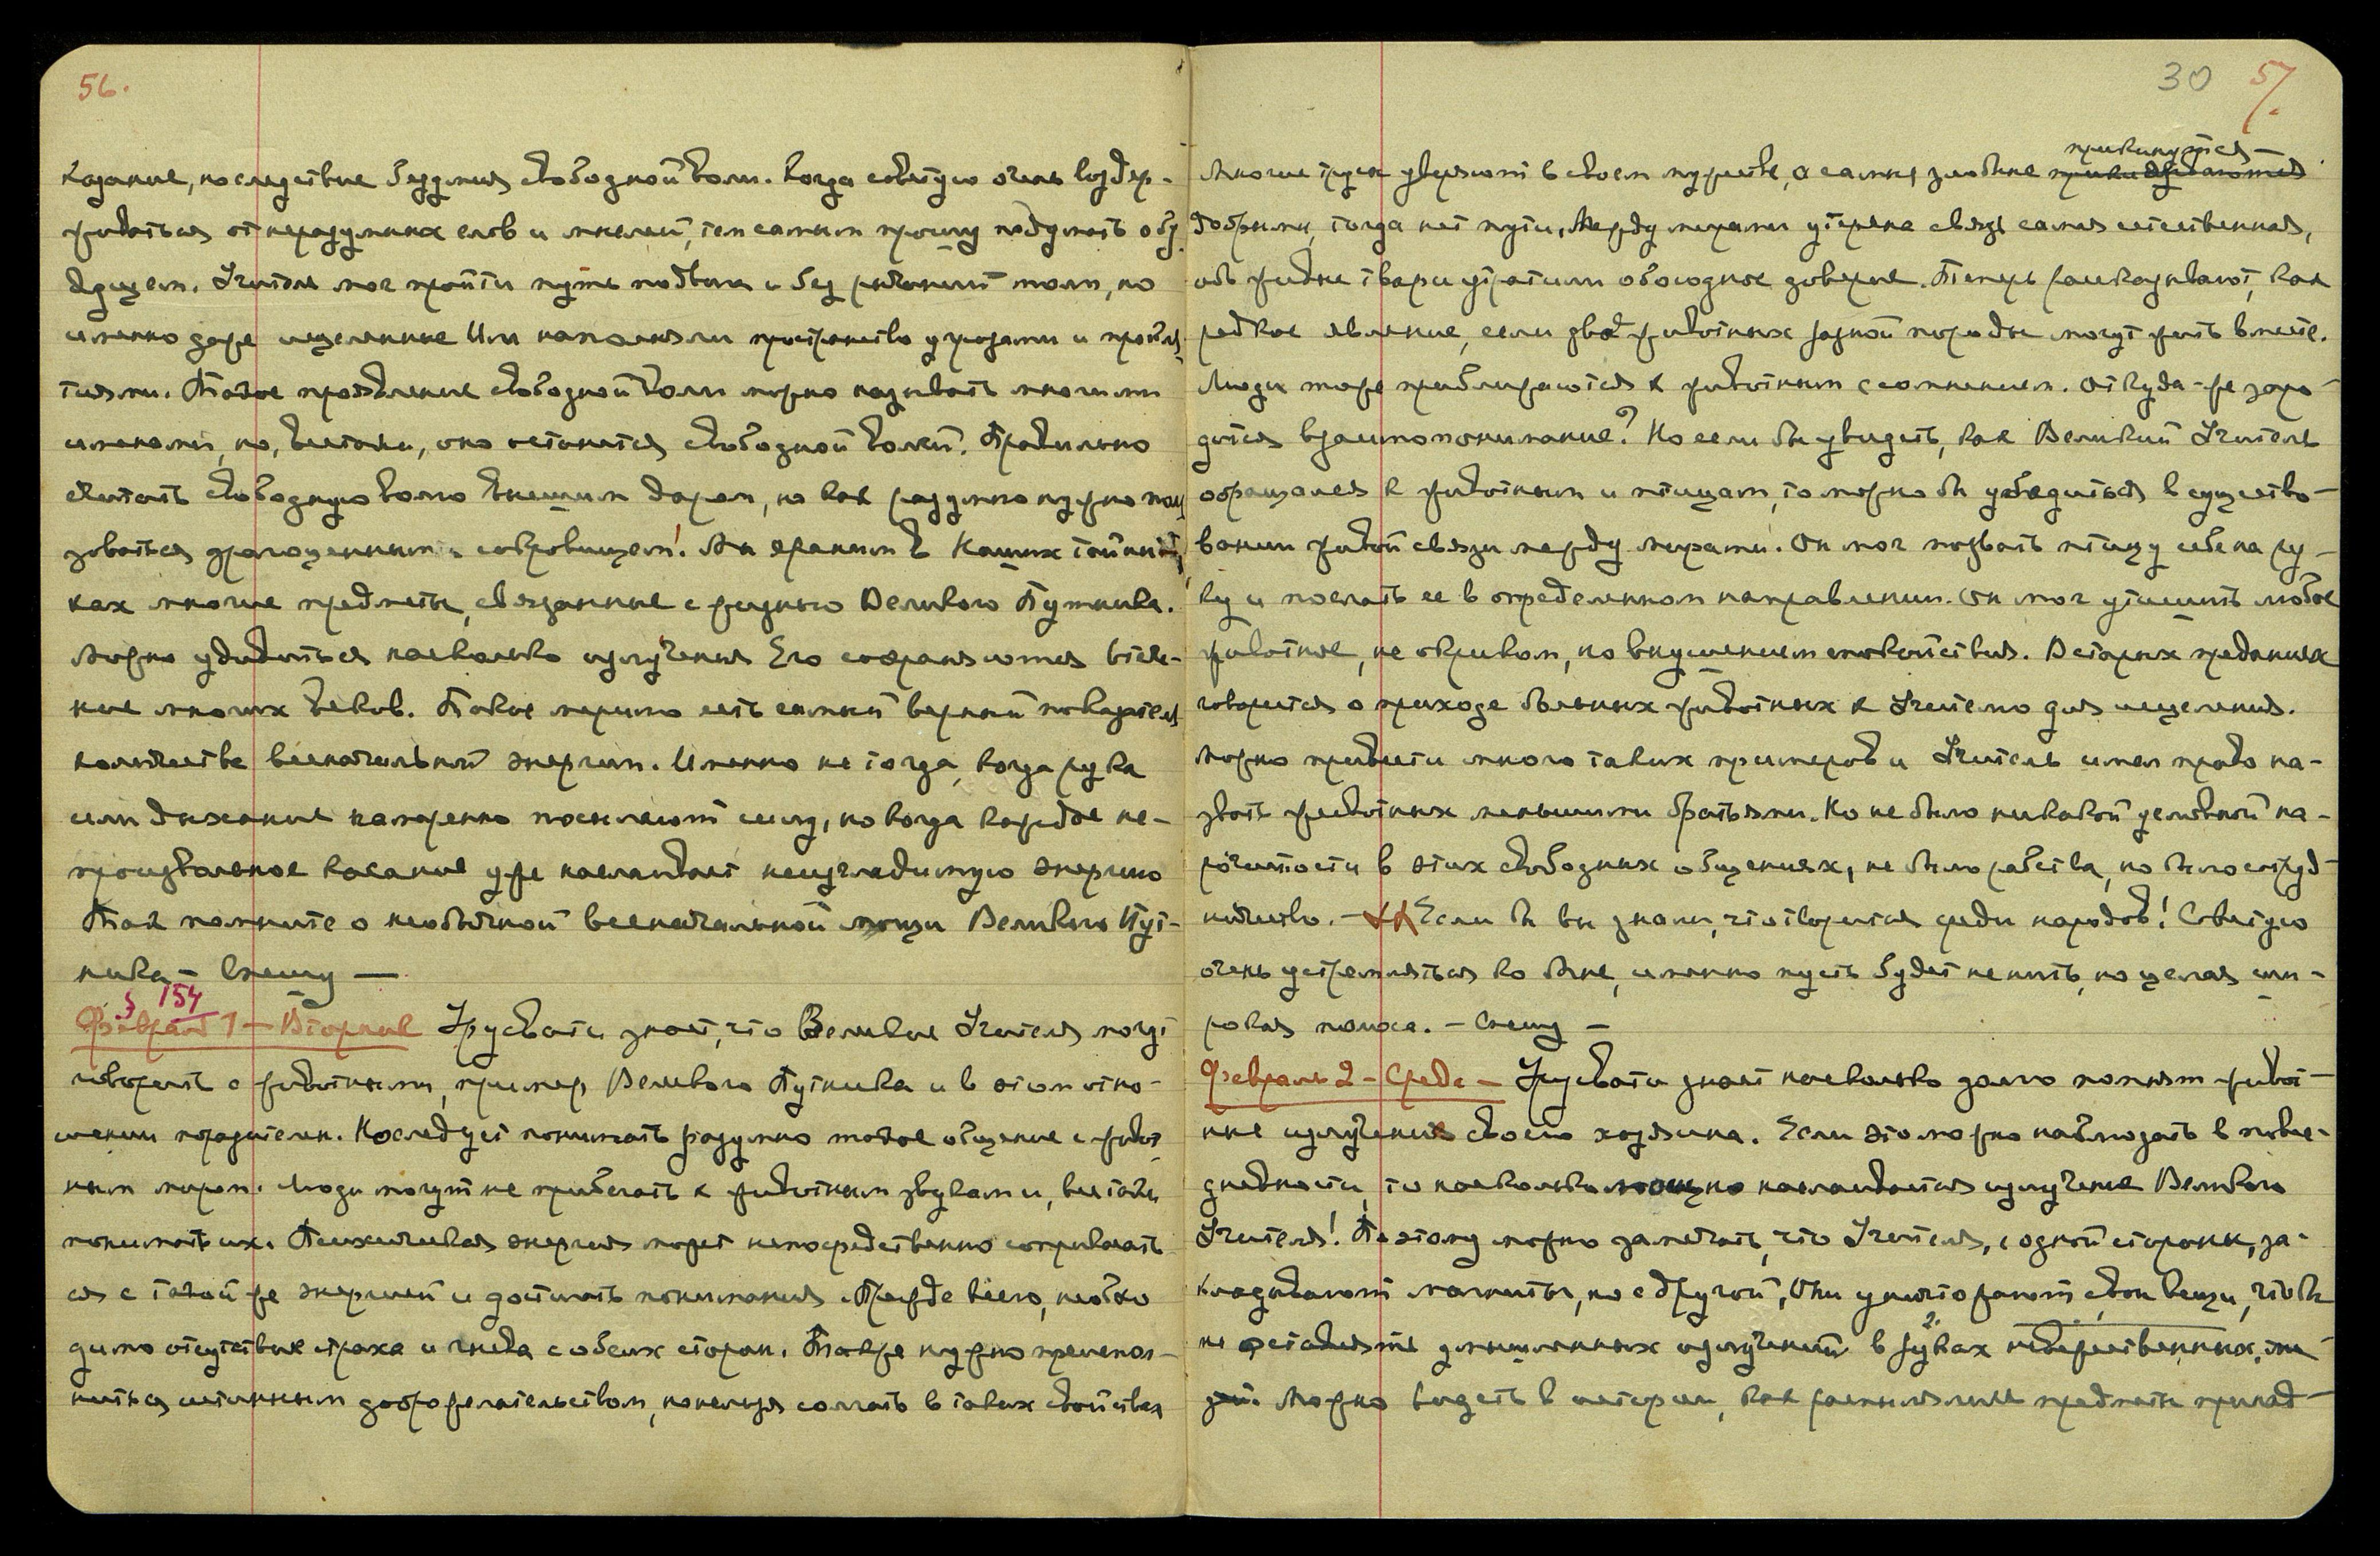 56.
казание, последствие безумия свободной воли. Когда советую очень воздер-
живаться от неразумных слов и мыслей, тем самым прошу подумать о бу
дущем. Учитель мог пройти путь подвига и без рычаний толп, но
именно даже исцеленные Им наполняли пространство угрозами и прокля
тиями. Такое проявление свободной воли можно называть многими
именами, но, все-таки, оно останется свободной волей. Правильно
считать свободную волю высшим даром, но как разумно нужно поль
зоваться драгоценным сокровищем! Мы храним в Наших тайни
ках многие предметы, связанные с жизнью Великого Путника.
Можно удивиться насколько излучения Его сохраняются в тече-
ние многих веков. Такое мерило есть самый верный показатель
количества всеначальной энергии. Именно не тогда, когда рука
или дыхание намеренно посылают силу, но когда каждое не-
произвольное касание уже наслаивает неизгладимую энергию
Так помните о необычной всеначальной мощи Великого Пут-
ника – Спешу —
§ 154
Февраль 1 – Вторник Урусвати знает, что Великие Учителя могут
говорить с животными, пример Великого Путника и в этом отно-
шении поразителен. Но следует понимать разумно такое общение с живот
ным миром. Люди могут не прибегать к животным звукам и, все таки
понимать их. Психическая энергия может непосредственно соприкасать
ся с такой же энергией и достигать понимания. Прежде всего, необхо
димо отсутствие страха и гнева с обеих сторон. Также нужно преиспол-
ниться истинным доброжелательством, но нельзя солгать в таких свойствах
30 57.
Многие трусы уверяют в своем мужестве, а самые злобные прикинутся –
добрыми, тогда нет пути, Между мирами утеряна связь самая естественная,
обе живые твари утратили обоюдное доверие. Теперь рассказывают, как
редкое явление, если два животных разной породы могут жить вместе.
Люди тоже приближаются к животным с сомнением. Откуда-же заро-
дится взаимопонимание? Но если бы увидеть, как Великий Учитель
обращался к животным и птицам, то можно бы убедиться в существо-
вании живой связи между мирами. Он мог позвать птицу себе на ру-
ку и послать ее в определенном направлении. Он мог утишить любое
животное, не окриком, но внушением спокойствия. В старых преданиях
говорится о приходе больных животных к Учителю для исцеления.
Можно привести много таких примеров и Учитель имел право на-
звать животных меньшими братьями. Но не было никакой условной на-
рочитости в этих свободных общениях, не было рабства, но было сотруд
ничество. – Если бы вы знали, что творится среди народов! Советую
очень устремляться ко Мне, именно пусть будет не нить, но целая ши-
рокая полоса. – Спешу –
Февраль 2 – Среда – Урусвати знает насколько долго помнят живот-
ные излучение своего хозяина. Если это можно наблюдать в повсе-
дневности, то насколько мощно наслаивается излучение Великого
Учителя! Поэтому можно замечать, что Учителя, с одной стороны, за-
кладывают магниты, но с другой, Они уничтожают свои вещи, чтобы
не оставлять умышленных излучений в руках невежественных.
Можно видеть в истории, как расхищали предметы принад-